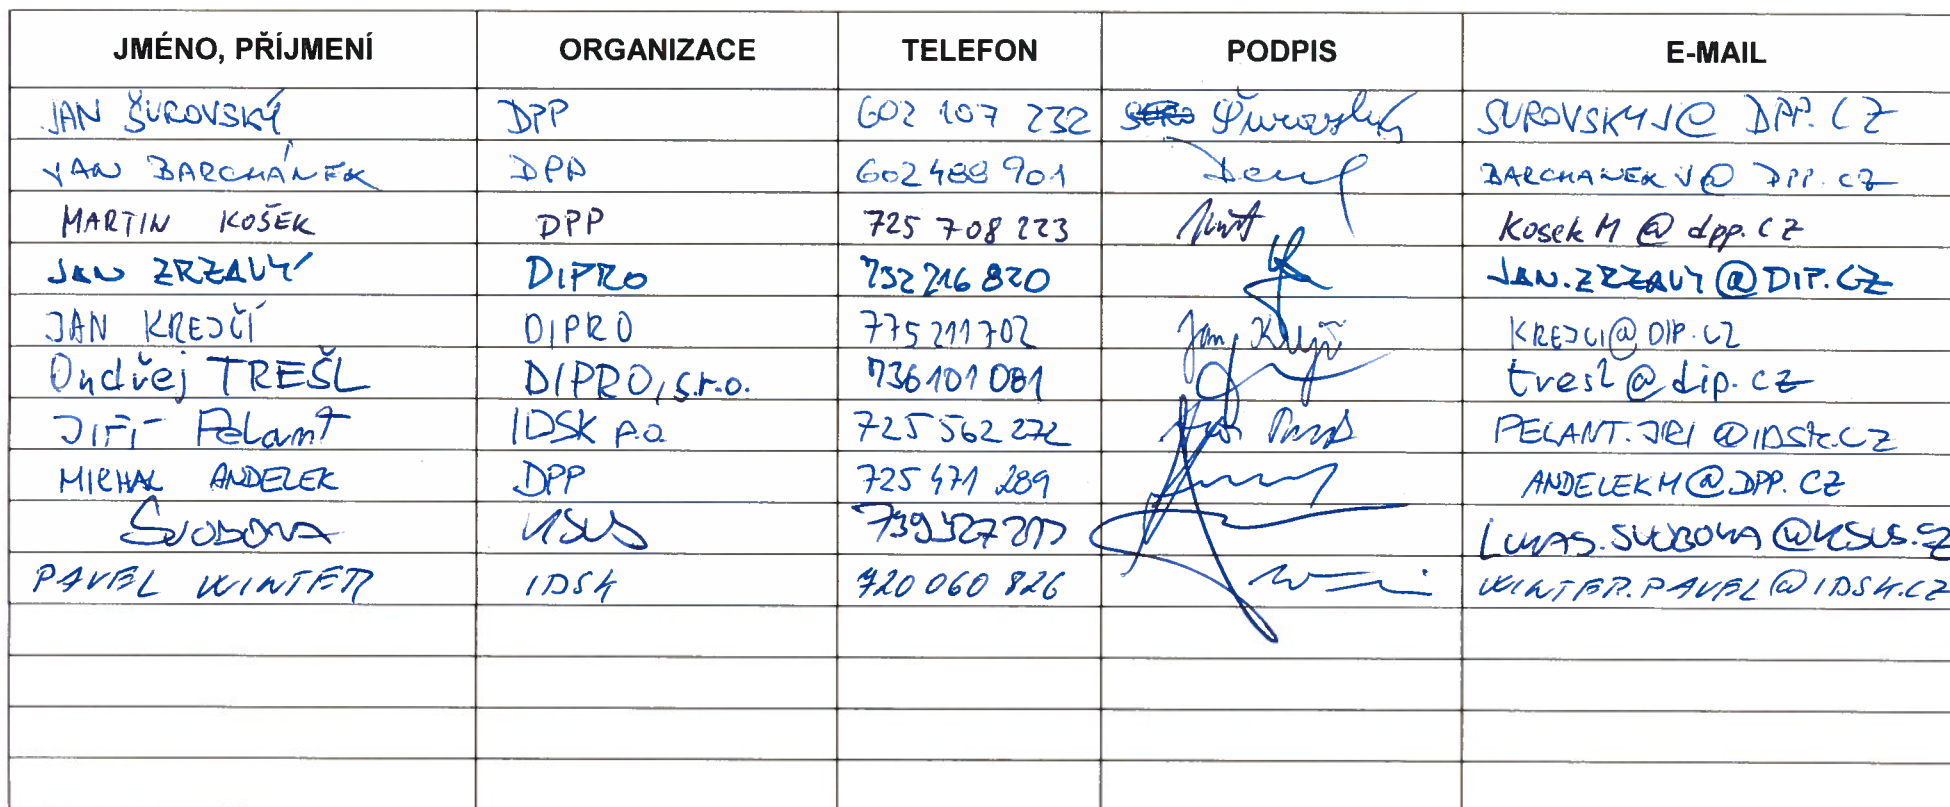 JMÉNO, PŘÍJMENÍ ORGANIZACE TELEFON PODPIS E-MAIL
JAN ŠUROVSKÝ DPP 602 107 232 Šurovský SUROVSKYJ@DPP.CZ
JAN BARCHÁNEK DPP 602 488 901 BARCHANEKJ@DPP.CZ
MARTIN KOŠEK DPP 725 708 223 KosekM@dpp.cz
JAN ZRZAVÝ DIPRO 732 216 820 JAN.ZRZAVY@DIP.CZ
JAN KREJČÍ DIPRO 775 211 702 Jan Krejčí KREJCI@DIP.CZ
Ondřej TREŠL DIPRO, s.r.o. 736 101 081 tresl@dip.cz
JIŘÍ Pelant IDSK p.o. 725 562 272 PELANT.JIRI@IDSK.CZ
MICHAL ANDELEK DPP 725 471 289 ANDELEKM@DPP.CZ
SVOBODA KSUS LUKAS.SVOBODA@KSUS.CZ
PAVEL WINTER IDSK 720 060 826 WINTER.PAVEL@IDSK.CZ